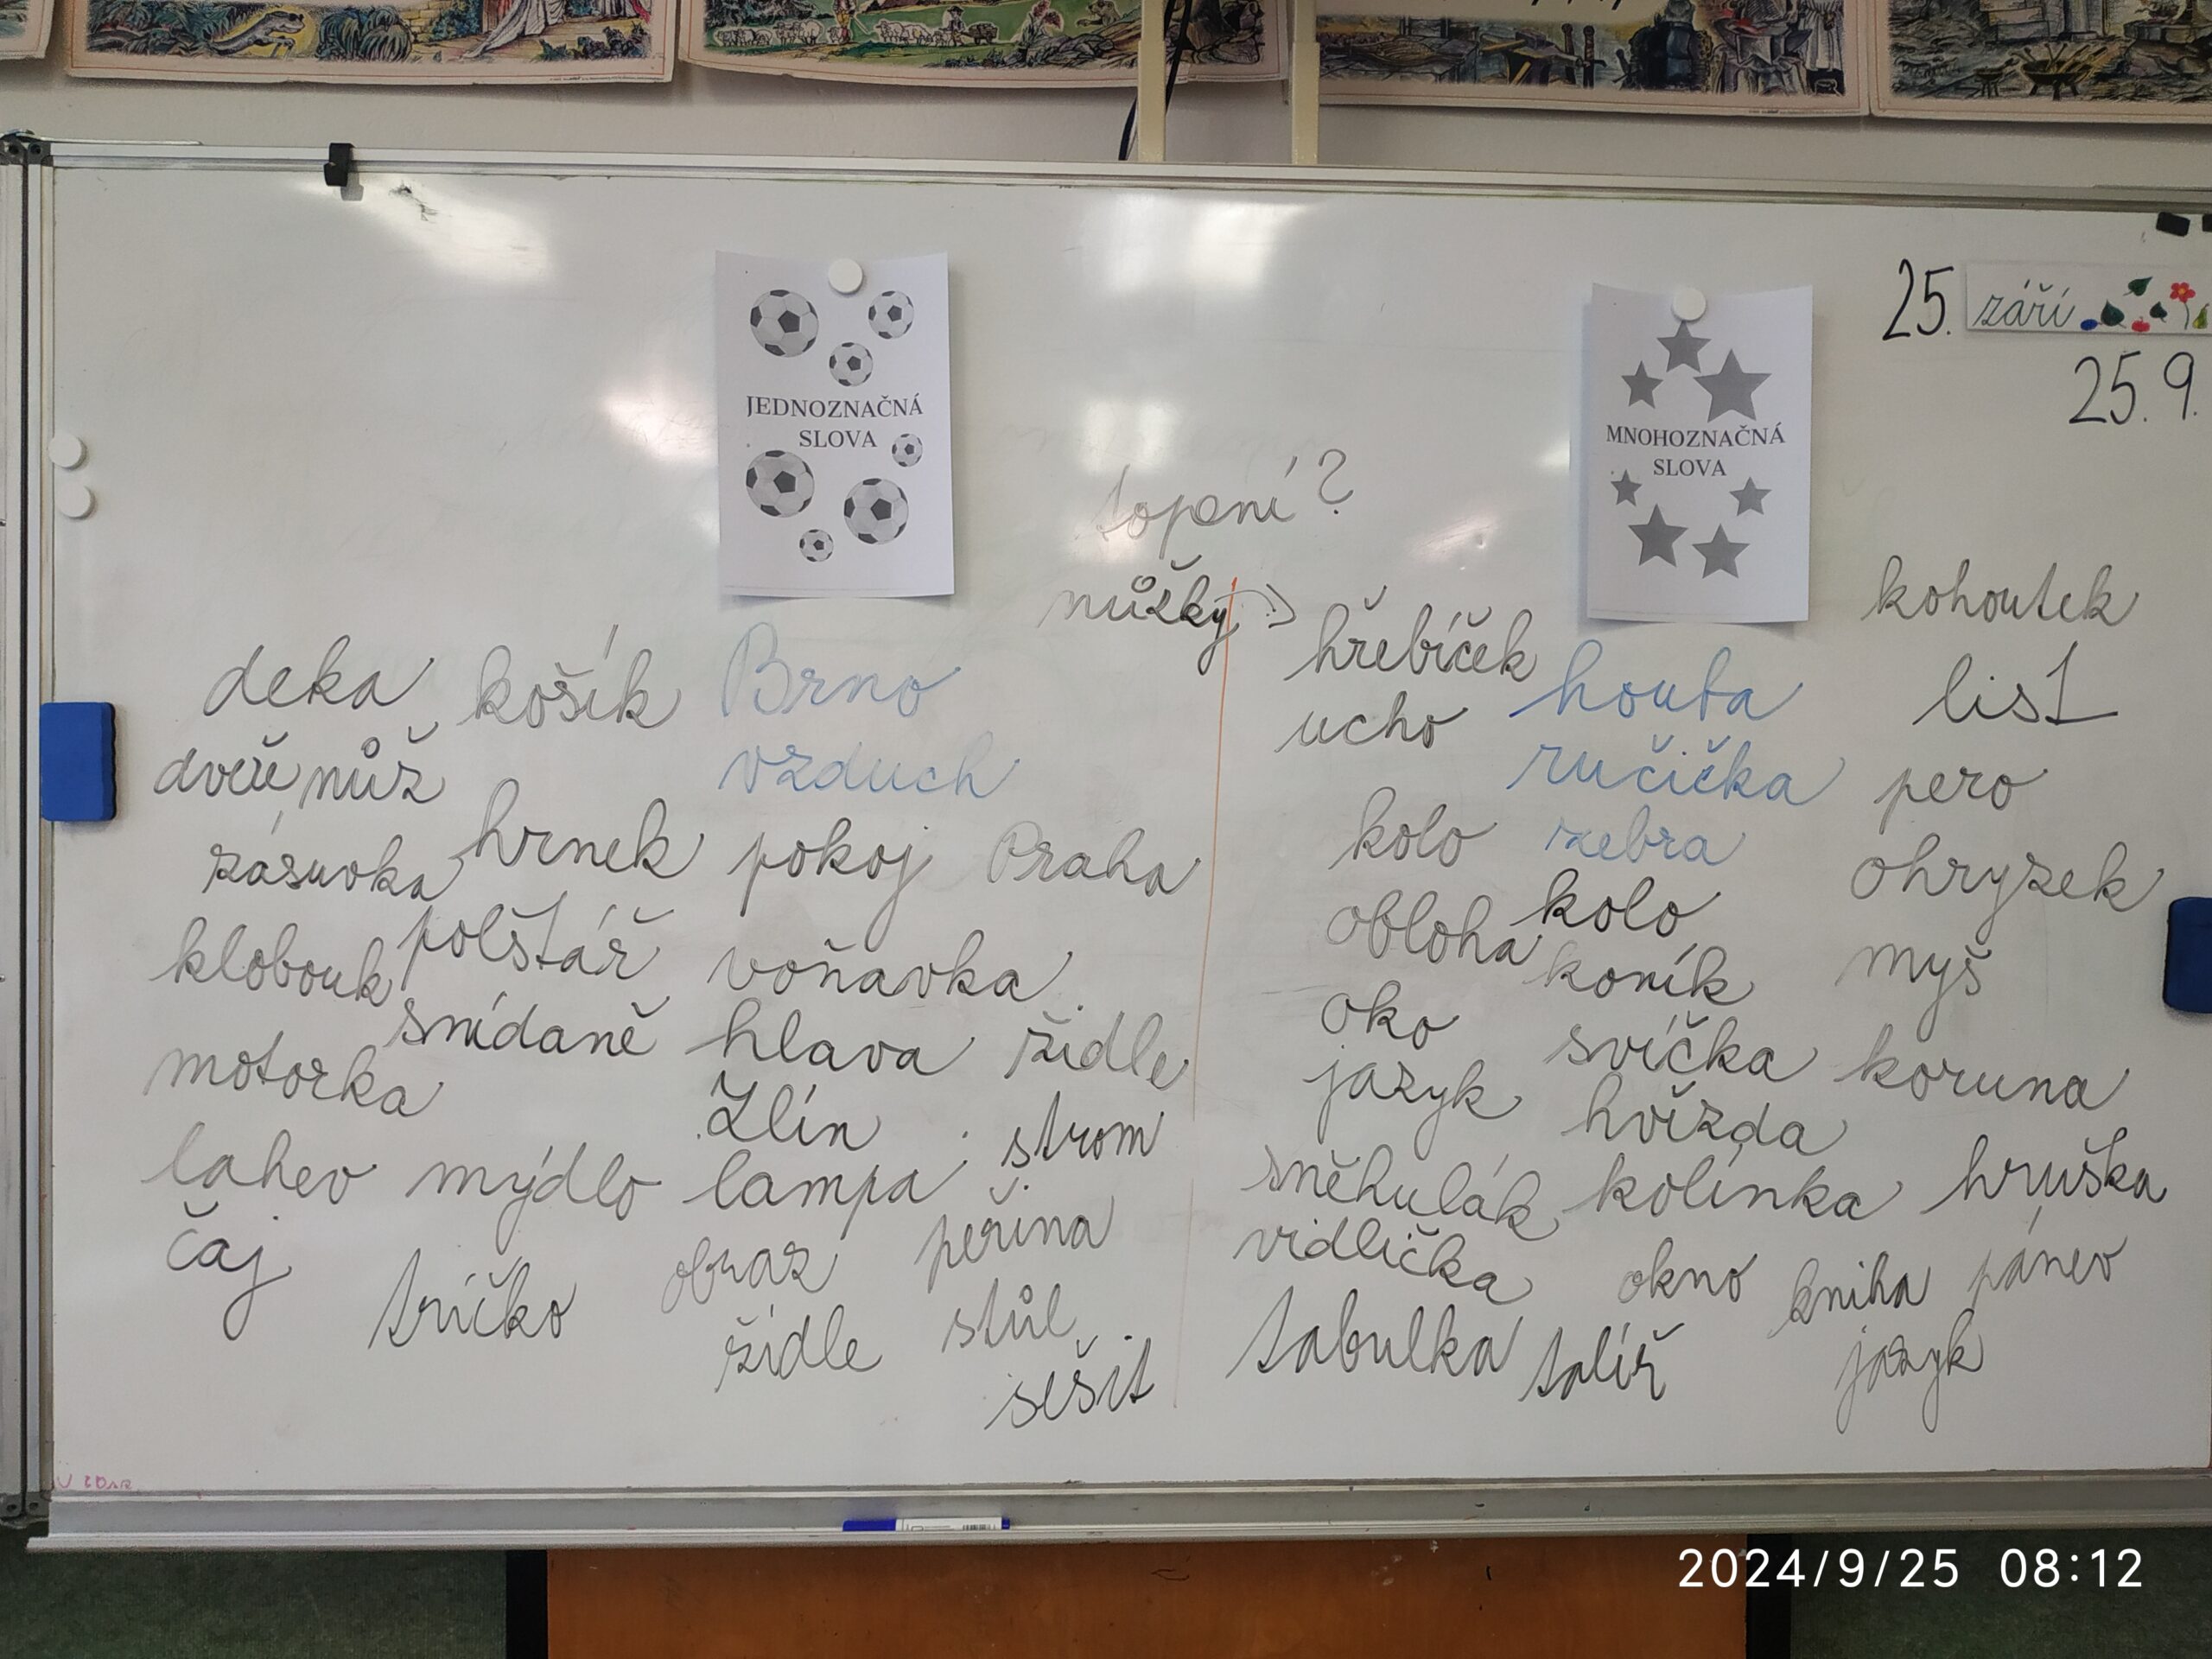 25. září
25. 9.
JEDNOZNAČNÁ
SLOVA
MNOHOZNAČNÁ
SLOVA
topení?
nůžky
deka košík Brno
dveře nůž vzduch
zásuvka hrnek pokoj Praha
klobouk polštář voňavka
motorka snídaně hlava židle
Zlín strom
lahev mýdlo lampa
čaj tričko obraz peřina
židle stůl
sešit
hřebíček houba kohoutek
ucho ručička list
kolo zebra pero
obloha kolo ohryzek
oko koník myš
jazyk svíčka koruna
hvězda
sněhulák kolínka hruška
vidlička okno kniha pánev
tabulka talíř jazyk
2024/9/25 08:12